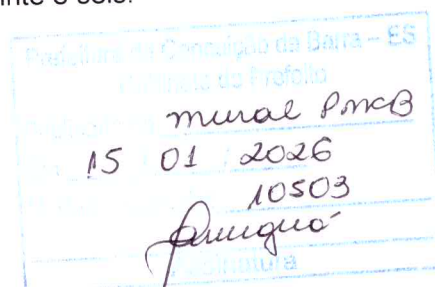 e seis.
Prefeitura de Conceição da Barra – ES
Gabinete do Prefeito
mural PMCB
15 01 2026
10503
Assinatura